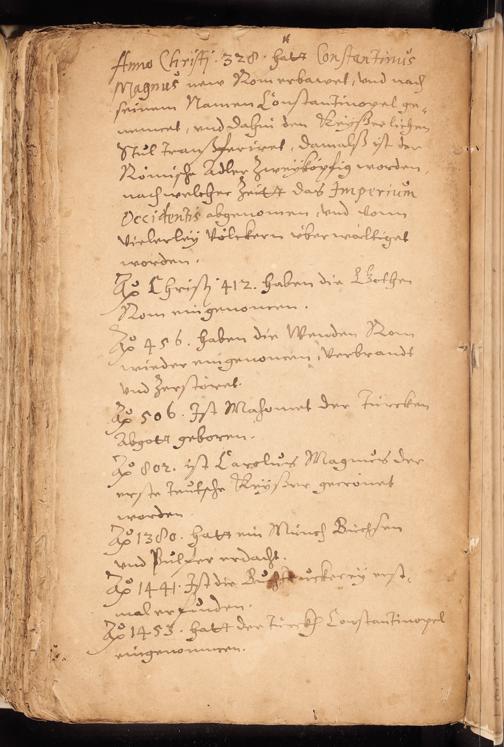 Anno Christi 328. hatt Constantinus
Magnus new Rom erbawet, vnd nach
seinem Namen Constantinopel ge„
nennet, vnd dahin den Keyßerlichen
Stul transferiret, damalß ist der
Römische Adler zweyköpfig worden,
nach welcher Zeitt das Imperium
Occidentis abgenomen, vnd vonn
vielerley Völckern vberwältiget
worden.
Ao Christi 412. haben die Gothen
Rom eingenomen.
Ao 456. haben die Wenden Rom
wieder eingenomen, verbrandt
vnd zerstöret.
Ao 506. Ist Mahomet der Türcken
Abgott geboren.
Ao 802. ist Carolus Magnus der
erste teutsche Keyßer gecrönet
worden.
Ao 1380. hatt ein Münch Büchsen
vnd Pulffer erdacht.
Ao 1441. Ist die Buchtruckerey erst„
mal erfunden.
Ao 1453. hatt der Türck Constantinopel
eingenommen.